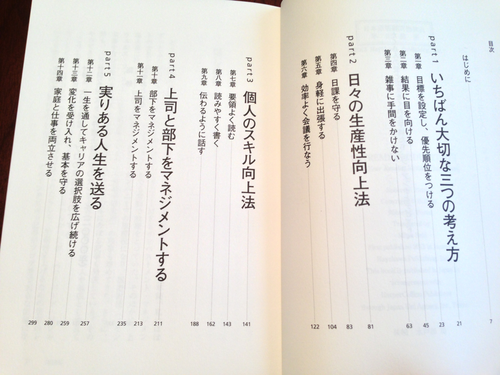 目次
はじめに 7
part 1 いちばん大切な三つの考え方 21
第一章 目標を設定し、優先順位をつける 23
第二章 結果に目を向ける 45
第三章 雑事に手間をかけない 63
part 2 日々の生産性向上法 81
第四章 日課を守る 83
第五章 身軽に出張する 104
第六章 効率よく会議を行なう 122
part 3 個人のスキル向上法 141
第七章 要領よく読む 143
第八章 読みやすく書く 162
第九章 伝わるように話す 188
part 4 上司と部下をマネジメントする 211
第十章 部下をマネジメントする 213
第十一章 上司をマネジメントする 235
part 5 実りある人生を送る 257
第十二章 一生を通してキャリアの選択肢を広げ続ける 259
第十三章 変化を受け入れ、基本を守る 280
第十四章 家庭と仕事を両立させる 299